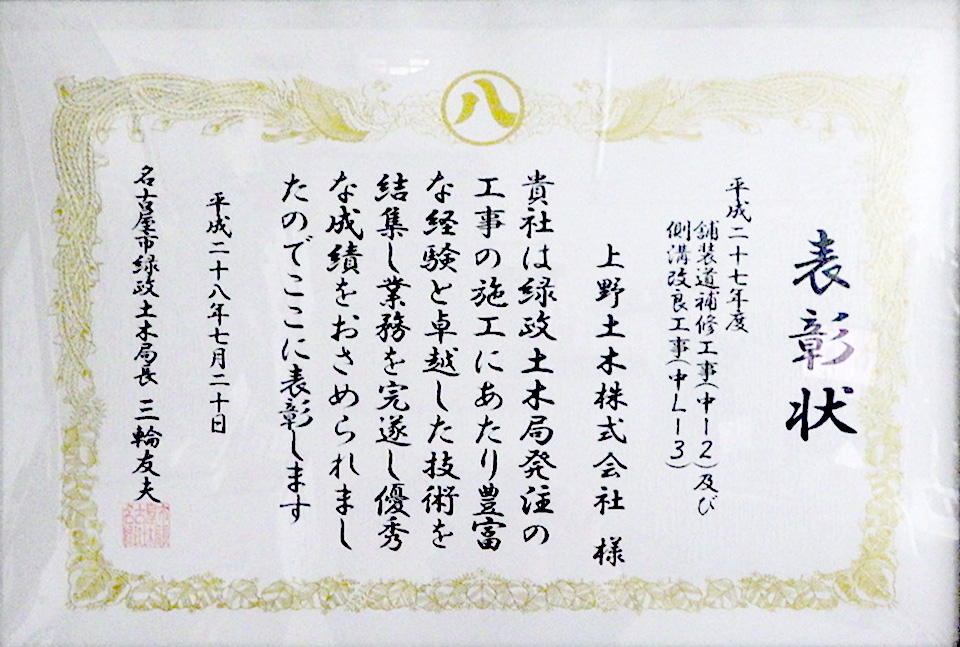 八
表彰状
平成二十七年度
舗装道補修工事(中-2)及び
側溝改良工事(中L-3)
上野土木株式会社 様
貴社は緑政土木局発注の
工事の施工にあたり豊富
な経験と卓越した技術を
結集し業務を完遂し優秀
な成績をおさめられまし
たのでここに表彰します
平成二十八年七月二十日
名古屋市緑政土木局長 三輪友夫